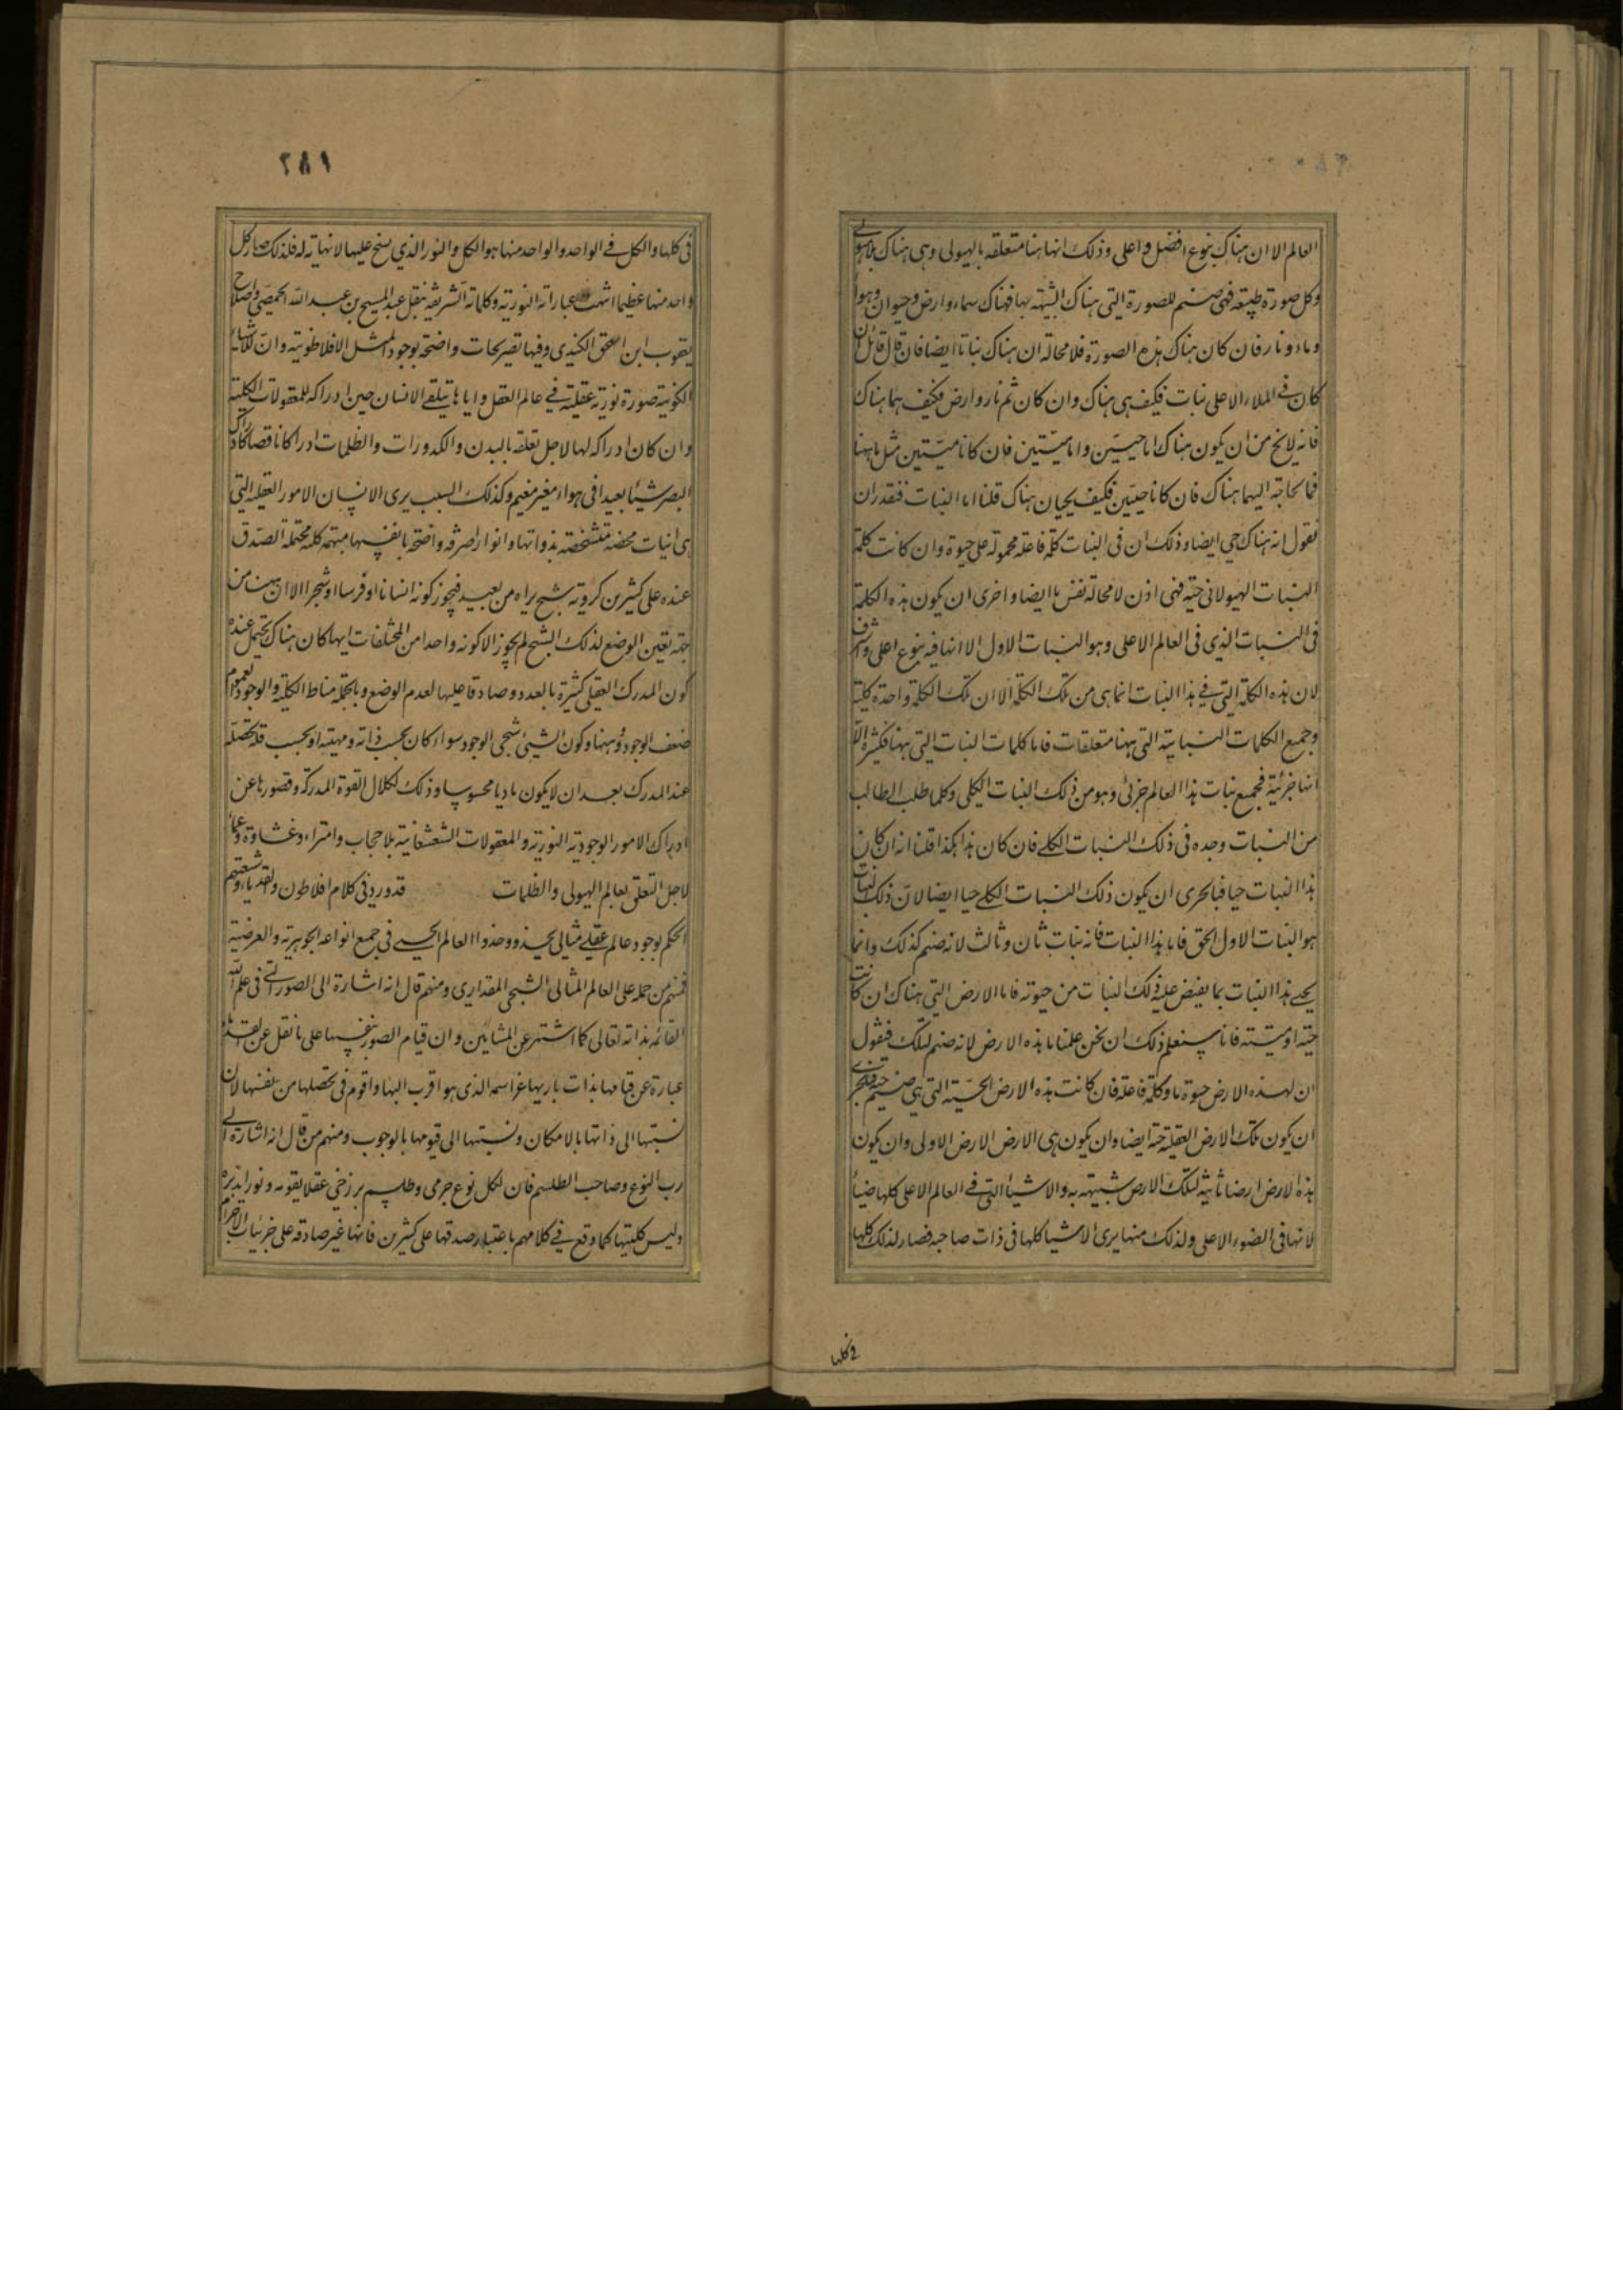 العالم الا ان هناك بنوع افضل و اعلى وذلك انها هنا متعلقه بالهيولى وهى هناك بلا هيولى
وكل صورة طبيعه فهى صنم للصورة التى هناك الشبيهه بها فهناك سماء و ارض و حيوان و هوا
و ماء و نار فان كان هناك هذه الصورة فلا محالة ان هناك نباتا ايضا فان قال قائل ان
كان فى الملاء الاعلى نبات فكيف هى هناك وان كان ثم نار و ارض فكيف هما هناك
فانه لا يخ من ان يكون هناك اما حيين و اما ميتين فان كانا ميتين مثل ما ههنا
فما الحاجة اليهما هناك فان كانا حيين فكيف يحيان هناك قلنا اما النبات فنقدر ان
نقول انه هناك حي ايضا وذلك ان فى النبات كلمة فاعله محمولة على حيوة وان كانت كلمة
النبات الهيولانى حية فهى اذن لا محالة نفس ما ايضا و احرى ان يكون هذه الكلمة
فى النبات الذي فى العالم الاعلى وهو النبات الاول الا انها فيه بنوع اعلى و اشرف
لان هذه الكلمة التى فى هذا النبات انما هى من تلك الكلمة الا ان تلك الكلمة واحدة كلية
وجميع الكلمات النباتية التى ههنا متعلقات فاما كلمات النبات التى ههنا فكثيرة الا
انها جزئية فجميع نبات هذا العالم جزئى وهو من ذلك النبات الكلى وكلما طلب الطالب
من النبات وجده فى ذلك النبات الكلى فان كان هذا هكذا قلنا انه ان كان
هذا النبات حيا فبالحرى ان يكون ذلك النبات الكلى حيا ايضا لان ذلك النبات
هو النبات الاول الحق فاما هذا النبات فانه نبات ثان و ثالث لانه صنم لذلك وانما
يحيى هذا النبات بما يفيض عليه ذلك النبات من حيوته فاما الارض التى هناك ان كانت
حية او ميتة فانا سنعلم ذلك ان نحن علمنا ما هذه الارض لانه صنم لتلك فنقول
ان لهذه الارض حيوة ما و كلمة فاعلة فان كانت هذه الارض الحسية التى هى صنم حية فبالحرى
ان يكون تلك الارض العقلية حية ايضا وان يكون هى الارض الارض الاولى وان يكون
هذه الارض ارضا ثانية لتلك الارض شبيهه به والاشياء التى فى العالم الاعلى كلها ضياء
لانها فى الضوء الاعلى ولذلك منها يرى الاشيا كلها فى ذات صاحبه فصار لذلك كلها
فى كلها
٢٨١
فى كلها و الكل فى الواحد و الواحد منها هو الكل و النور الذي يسنح عليها لا نهاية له فلذلك صار كل
واحد منها عظيما انتهت عباراته النورية و كلماته الشريفة بنقل عبد المسيح بن عبد الله الحمصى و اصلاح
يعقوب ابن اسحق الكندي وفيها تصريحات واضحة بوجود المثل الافلاطونية وان للاشياء
الكونية صورة نورية عقلية فى عالم العقل و اياها يتلقى الانسان حين ادراكه للمعقولات الكلية
و ان كان ادراكه لها لاجل تعلقه بالبدن و الكدورات و الظلمات ادراكا ناقصا كادراك
البصر شيئا بعيدا فى هواء مغبر مغيم وكذلك السبب يرى الانسان الامور العقلية التى
هى انيات محضة متشخصة بذواتها و انوار صرفه واضحة بانفسها مبهمة كلية محتملة الصدق
عنده على كثيرين كروية شبح يراه من بعيد فيجوز كونه انسانا او فرسا او شجرا الا ان ههنا من
جهة تعين الوضع لذلك الشبح لم يجوز الا كونه واحدا من المختلفات ايها كان هناك يحتمل عنده
كون المدرك العقلى كثيرة بالعدد و صادقا عليها لعدم الوضع وبالجملة مناط الكلية و العموم
ضعف الوجود و وهنها و كون الشىء شبحى الوجود سواء كان بحسب ذاته و مهيته او بحسب قلة تحصله
عند المدرك بعد ان لا يكون ماديا محسوسا وذلك لكلال القوة المدركة و قصورها عن
ادراك الامور الوجودية النورية و المعقولات الشعشعانية بلا حجاب و امتراء و غشاوة و عماء
لاجل التعلق بعالم الهيولى و الظلمات قد ورد فى كلام افلاطون و القدماء و شيعتهم
الحكم بوجود عالم عقلى مثالى يحذو حذو العالم الحسى فى جميع انواعه الجوهرية و العرضية
فمنهم من حمله على العالم المثالى الشبحى المقدارى و منهم قال انه اشارة الى الصور التى فى علم الله
القائمة بذاته تعالى كما اشتهر عن المشايين و ان قيام الصور بنفسها على ما نقل عن
عبارة عن قيامها بذات باريها عز اسمه الذى هو اقرب اليها و اقوم فى تحصلها من نفسها لان
نسبتها الى ذاتها بالامكان و نسبتها الى قيومها بالوجوب و منهم من قال انه اشارة الى
رب النوع و صاحب الطلسم فان لكل نوع جرمى و طلسم برزخى عقلا يقومه و نورا يدبره
وليس كليتها كما وقع فى كلامهم باعتبار صدقها على كثيرين فانها غير صادقة على جزئيات الاجرام